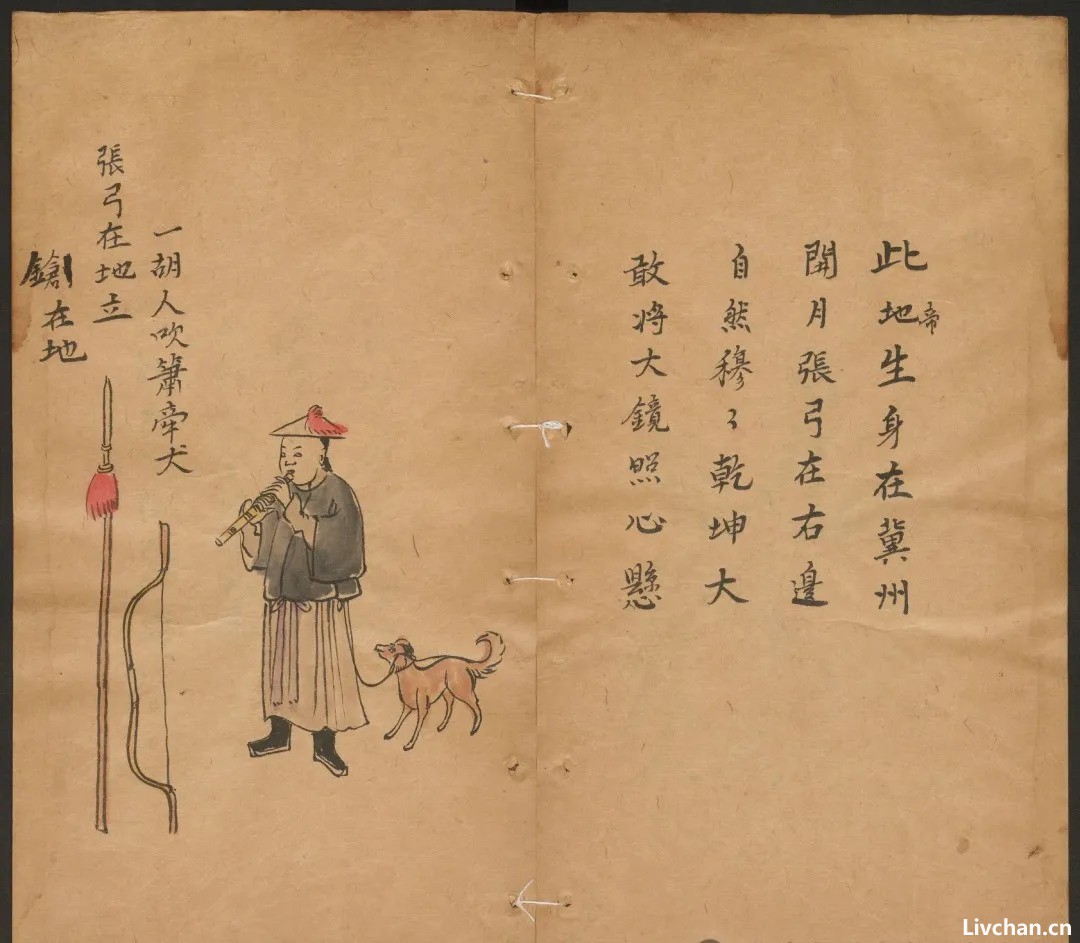 此地生身在冀州
帝
開月張弓在右邊
自然穆〻乾坤大
敢将大鏡照心懸
一胡人吹簫牽犬
張弓在地立
鎗在地
Livchan.cn